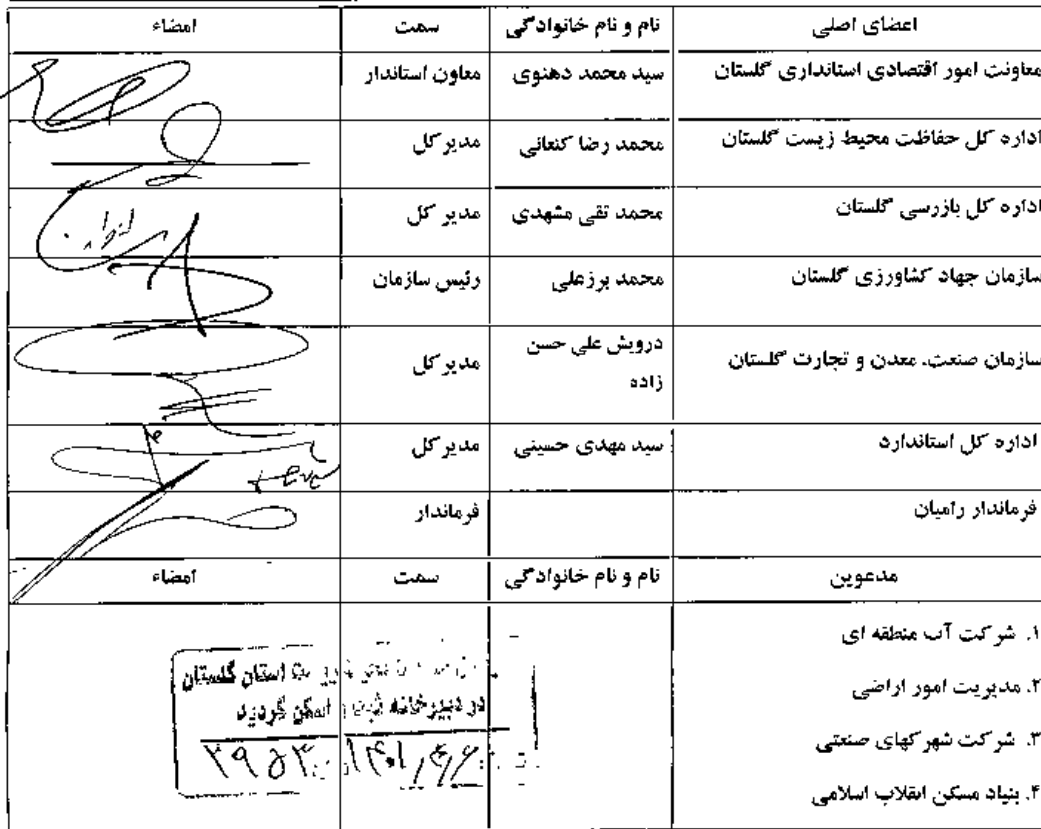 اعضای اصلی نام و نام خانوادگی سمت امضاء
معاونت امور اقتصادی استانداری گلستان سید محمد دهنوی معاون استاندار
اداره کل حفاظت محیط زیست گلستان محمد رضا کنعانی مدیر کل
اداره کل بازرسی گلستان محمد تقی مشهدی مدیر کل
سازمان جهاد کشاورزی گلستان محمد برزعلی رئیس سازمان
سازمان صنعت، معدن و تجارت گلستان درویش علی حسن زاده مدیر کل
اداره کل استاندارد سید مهدی حسینی مدیر کل
فرماندار رامیان فرماندار
مدعوین نام و نام خانوادگی سمت امضاء
۱. شرکت آب منطقه ای
۲. مدیریت امور اراضی
۳. شرکت شهرکهای صنعتی
۴. بنیاد مسکن انقلاب اسلامی
استان گلستان
در دبیرخانه ثبت و اسکن گردید